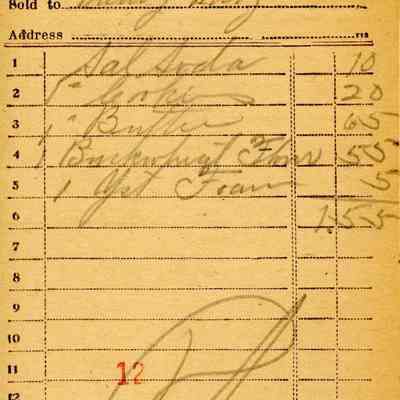 Sold to
Address
1 Sal Soda 10
2 1 " Cookies 20
3 1 " Butter 65
4 1 Buckwheat Flour 55
5 1 Yst Foam 5
6 1.55
7
8
9
10
11 12
12